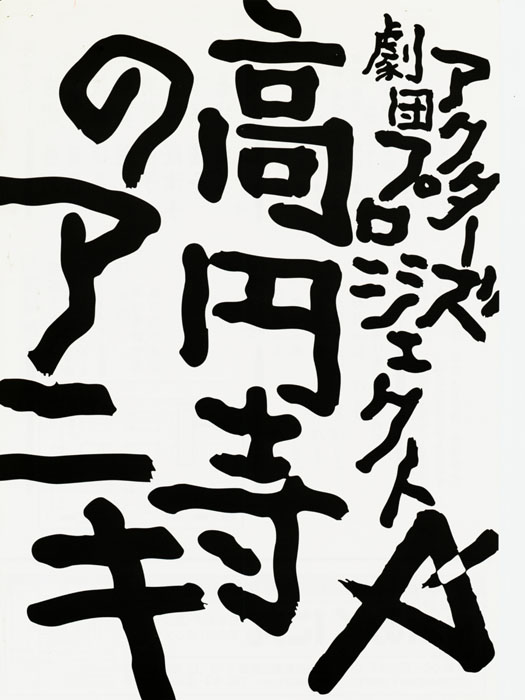 劇団
アクターズ
プロジェクト
A
高円寺
のアニキ